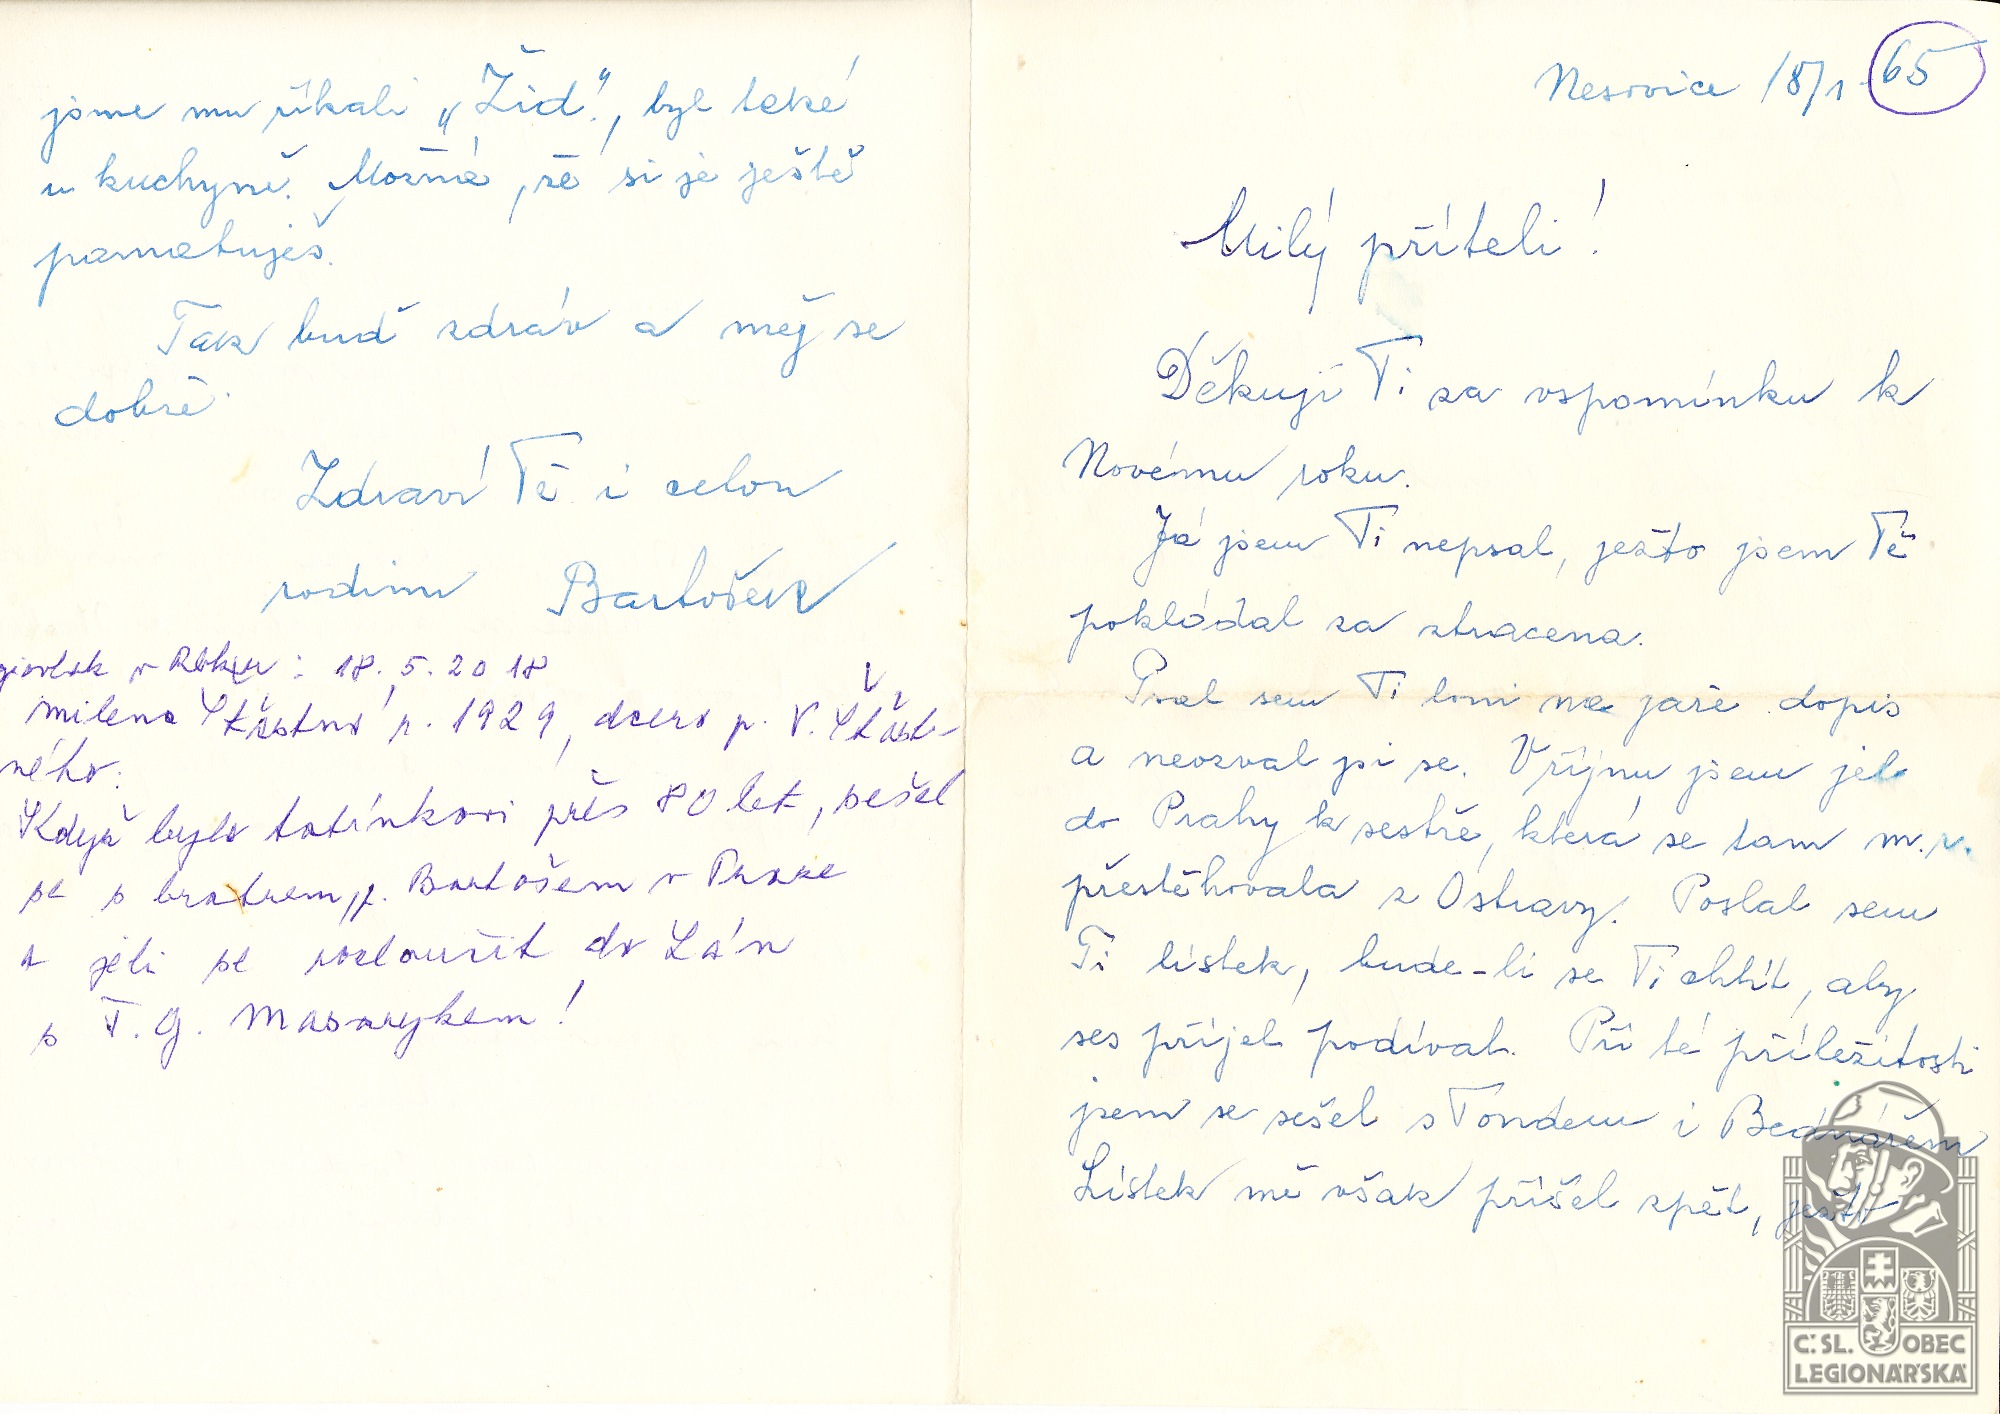 Nesovice 18/1 65
Milý příteli!
Děkuji Ti za vspomínku k
Novému roku.
Já jsem Ti nepsal, ježto jsem Tě
pokládal za ztracena.
Psal sem Ti loni na jaře dopis
a neozval jsi se. V říjnu jsem jel
do Prahy k sestře, která se tam m.r.
přestěhovala z Ostravy. Poslal sem
Ti lístek, bude-li se Ti chtít, aby
ses přijel podívat. Při té příležitosti
jsem se sešel s Tondem i Bednářem
Lístek mě však přišel zpět, ježto
jsme mu říkali „Žid“, byl také
u kuchyně. Možná, že si je ještě
pamatuješ.
Tak buď zdráv a měj se
dobře.
Zdraví Tě i celou
rodinu Bartošek
v : 18. 5. 2018
Milena Šťastná r. 1929, dcera p. V. Šťast-
ného:
Když bylo tatínkovi přes 80 let, sešel
se s bratrem, p. Bartošem v Praze
a jeli se rozloučit do Lán
s T. G. Masarykem!
Č. SL. OBEC
LEGIONÁŘSKÁ